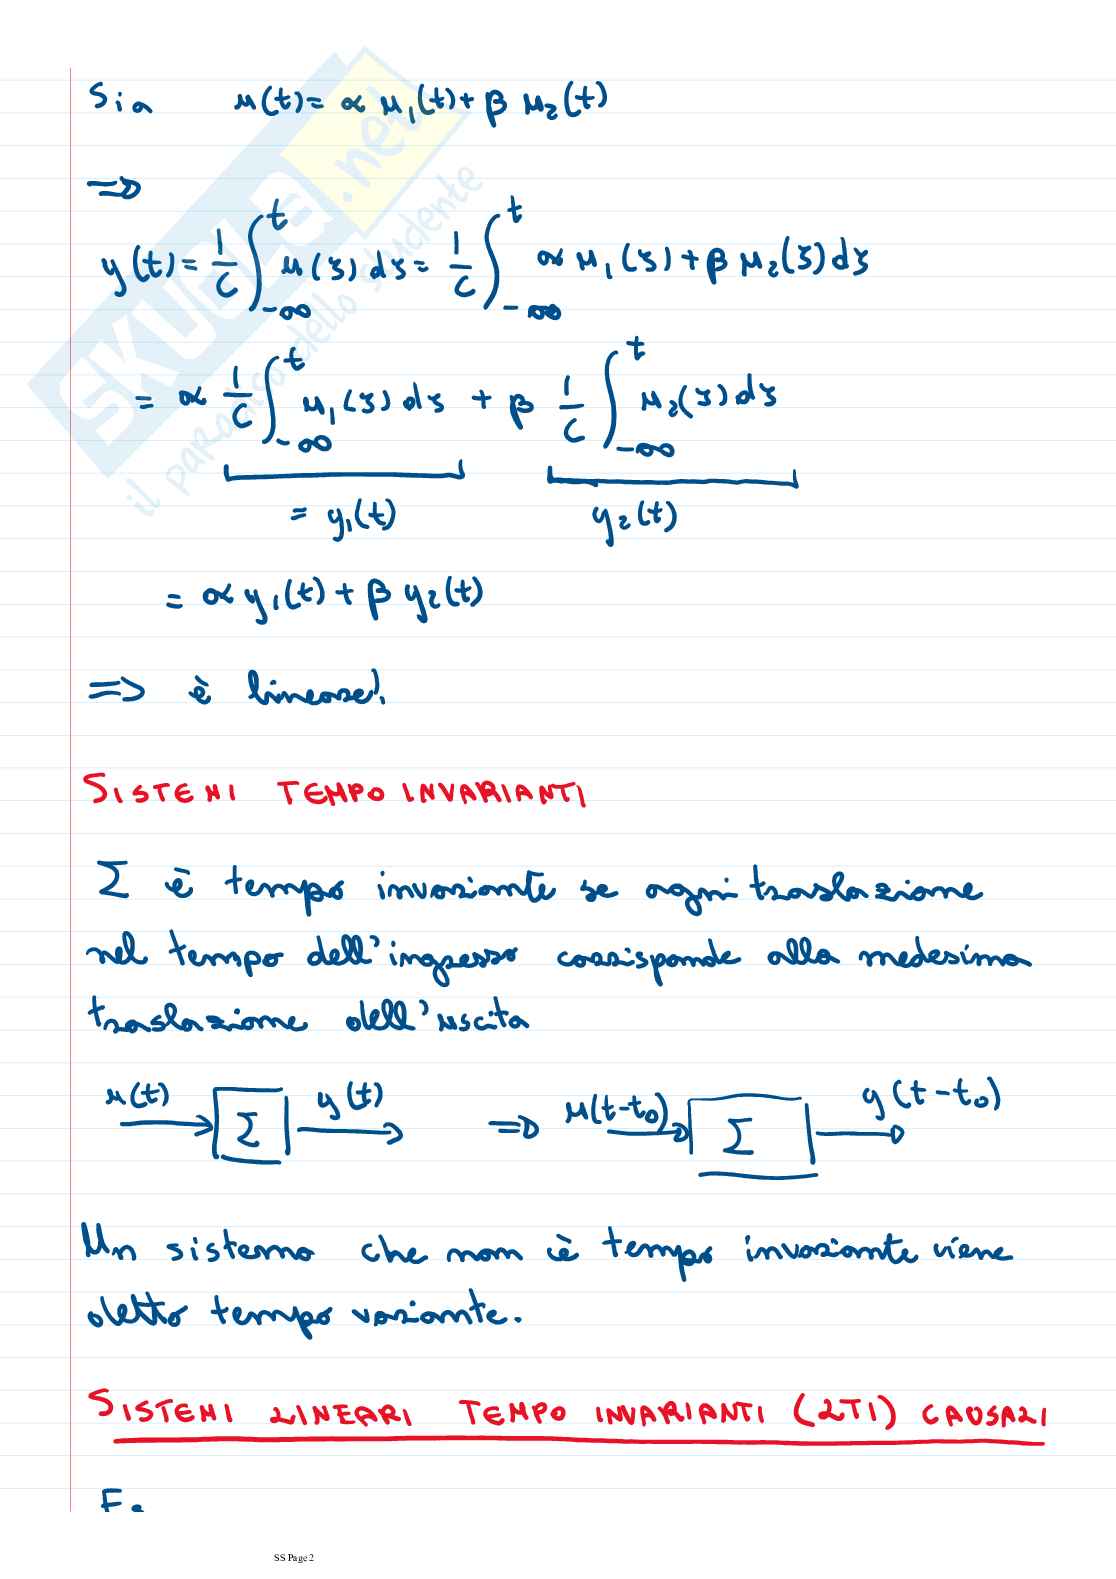 Sia u(t) = α u₁(t) + β u₂(t)
⇒
y(t) = 1/C ∫_{-∞}^{t} u(ξ) dξ = 1/C ∫_{-∞}^{t} α u₁(ξ) + β u₂(ξ) dξ
= α 1/C ∫_{-∞}^{t} u₁(ξ) dξ + β 1/C ∫_{-∞}^{t} u₂(ξ) dξ
= y₁(t) y₂(t)
= α y₁(t) + β y₂(t)
=> è lineare!
SISTEMI TEMPO INVARIANTI
Σ è tempo invariante se ogni traslazione
nel tempo dell'ingresso corrisponde alla medesima
traslazione dell'uscita
u(t) Σ y(t) ⇒ u(t-t₀) Σ y(t-t₀)
Un sistema che non è tempo invariante viene
detto tempo variante.
SISTEMI LINEARI TEMPO INVARIANTI (LTI) CAUSALI
SS Page 2
SKUOLA.net
il paradiso dello studente